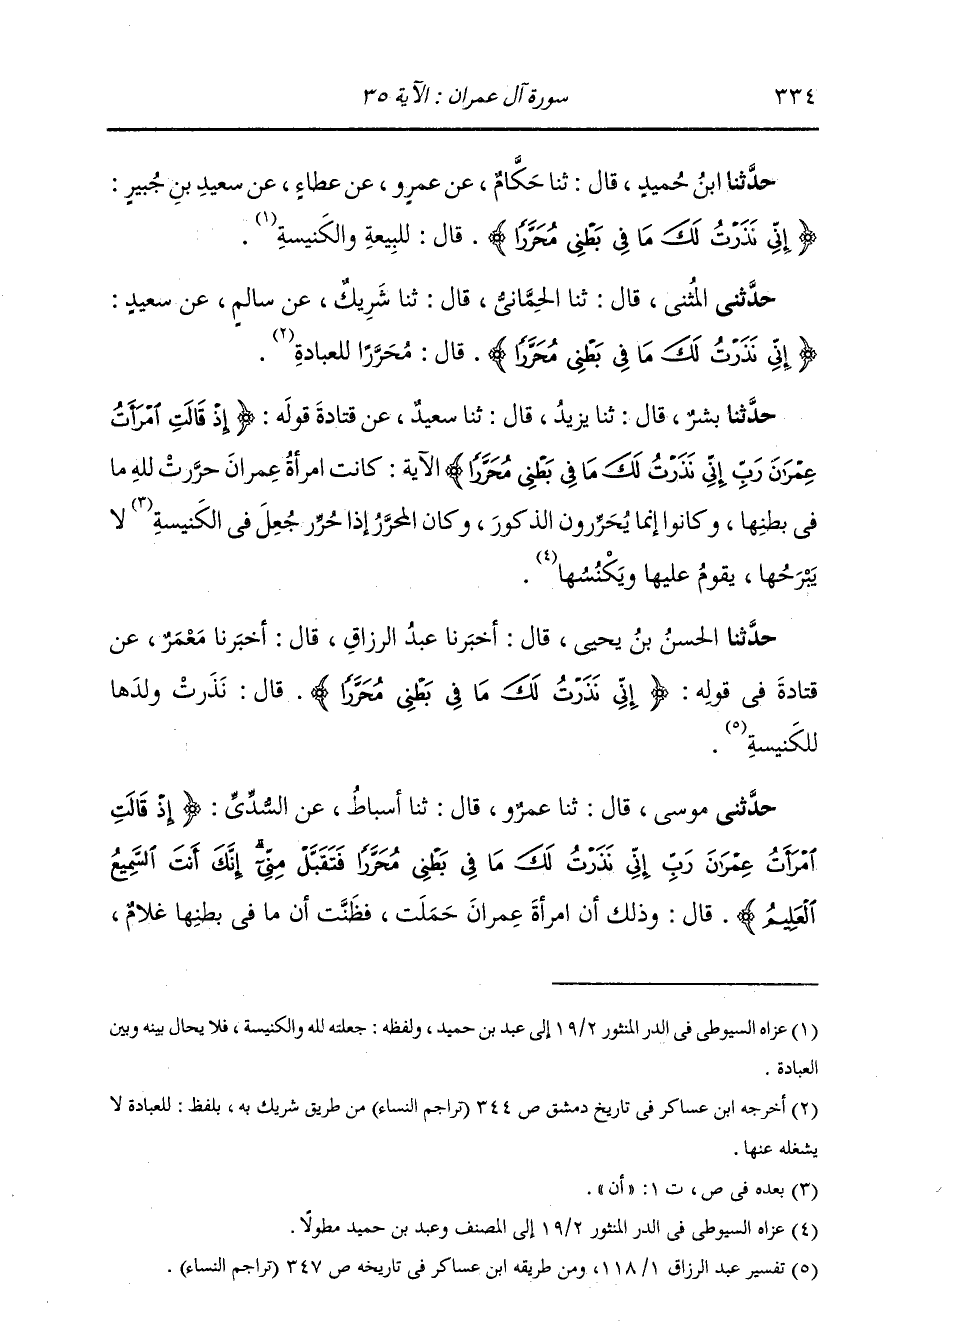 ٣٣٤ سورة آل عمران : الآية ٣٥
حدَّثنا ابنُ حُميدٍ ، قال : ثنا حَكَّامٌ ، عن عمرٍو ، عن عطاءٍ ، عن سعيدِ بنِ جُبيرٍ :
﴿ إِنِّي نَذَرْتُ لَكَ مَا فِي بَطْنِي مُحَرَّرًا ﴾ . قال : للبِيعةِ والكَنيسةِ(١) .
حدَّثنى المُثنى ، قال : ثنا الحِمَّانىُّ ، قال : ثنا شَرِيكٌ ، عن سالمٍ ، عن سعيدٍ :
﴿ إِنِّي نَذَرْتُ لَكَ مَا فِي بَطْنِي مُحَرَّرًا ﴾ . قال : مُحَرَّرًا للعبادةِ(٢) .
حدَّثنا بشرٌ ، قال : ثنا يزيدُ ، قال : ثنا سعيدٌ ، عن قتادةَ قولَه : ﴿ إِذْ قَالَتِ ٱمْرَأَتُ
عِمْرَٰنَ رَبِّ إِنِّي نَذَرْتُ لَكَ مَا فِي بَطْنِي مُحَرَّرًا ﴾ الآية : كانت امرأةُ عِمرانَ حرَّرتْ للهِ ما
فى بطنِها ، وكانوا إنما يُحَرِّرون الذكورَ ، وكان المحرَّرُ إذا حُرِّر جُعِلَ فى الكَنيسةِ(٣) لا
يَبْرَحُها ، يقومُ عليها ويَكْنُسُها(٤) .
حدَّثنا الحسنُ بنُ يحيى ، قال : أخبَرنا عبدُ الرزاقِ ، قال : أخبَرنا مَعْمَرٌ ، عن
قتادةَ فى قولِه : ﴿ إِنِّي نَذَرْتُ لَكَ مَا فِي بَطْنِي مُحَرَّرًا ﴾ . قال : نَذَرتْ ولدَها
للكَنيسةِ(٥) .
حدَّثنى موسى ، قال : ثنا عمرٌو ، قال : ثنا أسباطُ ، عن السُّدِّىِّ : ﴿ إِذْ قَالَتِ
ٱمْرَأَتُ عِمْرَٰنَ رَبِّ إِنِّي نَذَرْتُ لَكَ مَا فِي بَطْنِي مُحَرَّرًا فَتَقَبَّلْ مِنِّيٓۖ إِنَّكَ أَنتَ ٱلسَّمِيعُ
ٱلْعَلِيمُ ﴾ . قال : وذلك أن امرأةَ عِمرانَ حَمَلَت ، فظَنَّت أن ما فى بطنِها غلامٌ ،
(١) عزاه السيوطى فى الدر المنثور ١٩/٢ إلى عبد بن حميد ، ولفظه : جعلته لله والكنيسة ، فلا يحال بينه وبين
العبادة .
(٢) أخرجه ابن عساكر فى تاريخ دمشق ص ٣٤٤ (تراجم النساء) من طريق شريك به ، بلفظ : للعبادة لا
يشغله عنها .
(٣) بعده فى ص ، ت ١: «أن» .
(٤) عزاه السيوطى فى الدر المنثور ١٩/٢ إلى المصنف وعبد بن حميد مطولًا .
(٥) تفسير عبد الرزاق ١١٨/١، ومن طريقه ابن عساكر فى تاريخه ص ٣٤٧ (تراجم النساء) .